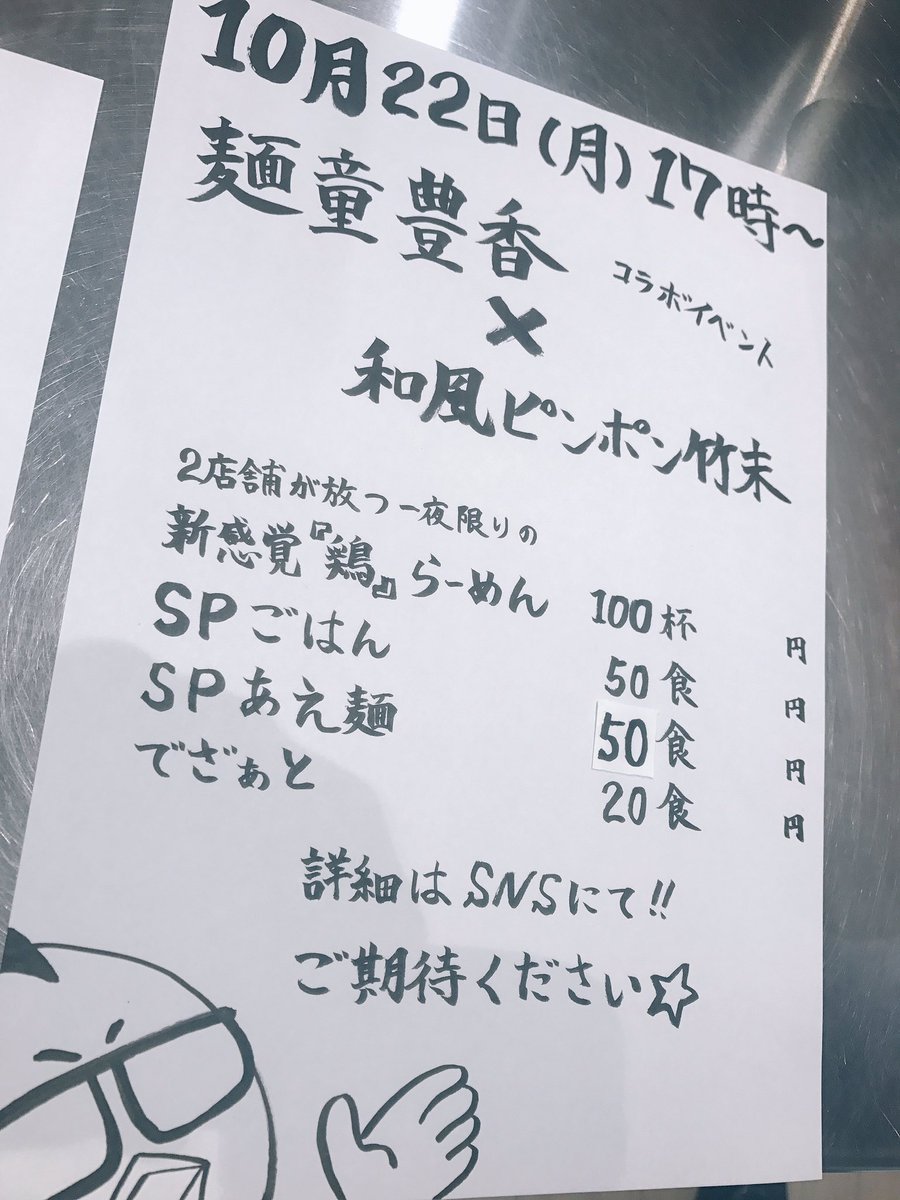 10月22日(月)17時～
麺童豊香
コラボイベント
×
和風ピンポン竹末
2店舗が放つ一夜限りの
新感覚『鶏』らーめん 100杯 円
SPごはん 50食 円
SPあえ麺 50食 円
でざぁと 20食 円
詳細はSNSにて!!
ご期待ください☆